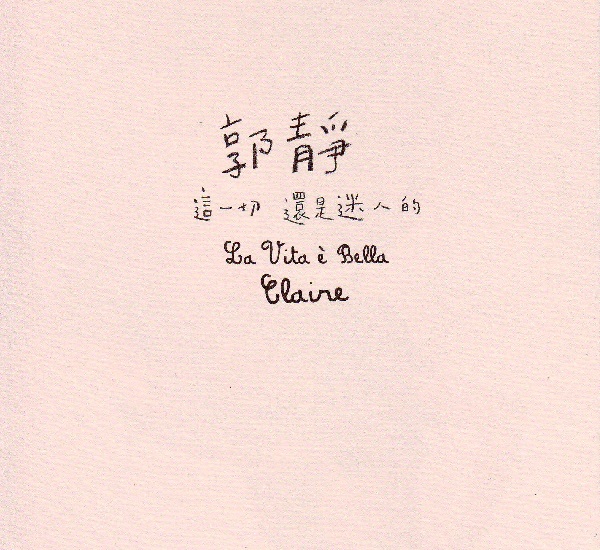 郭靜
這一切 還是迷人的
La Vita è Bella
Claire